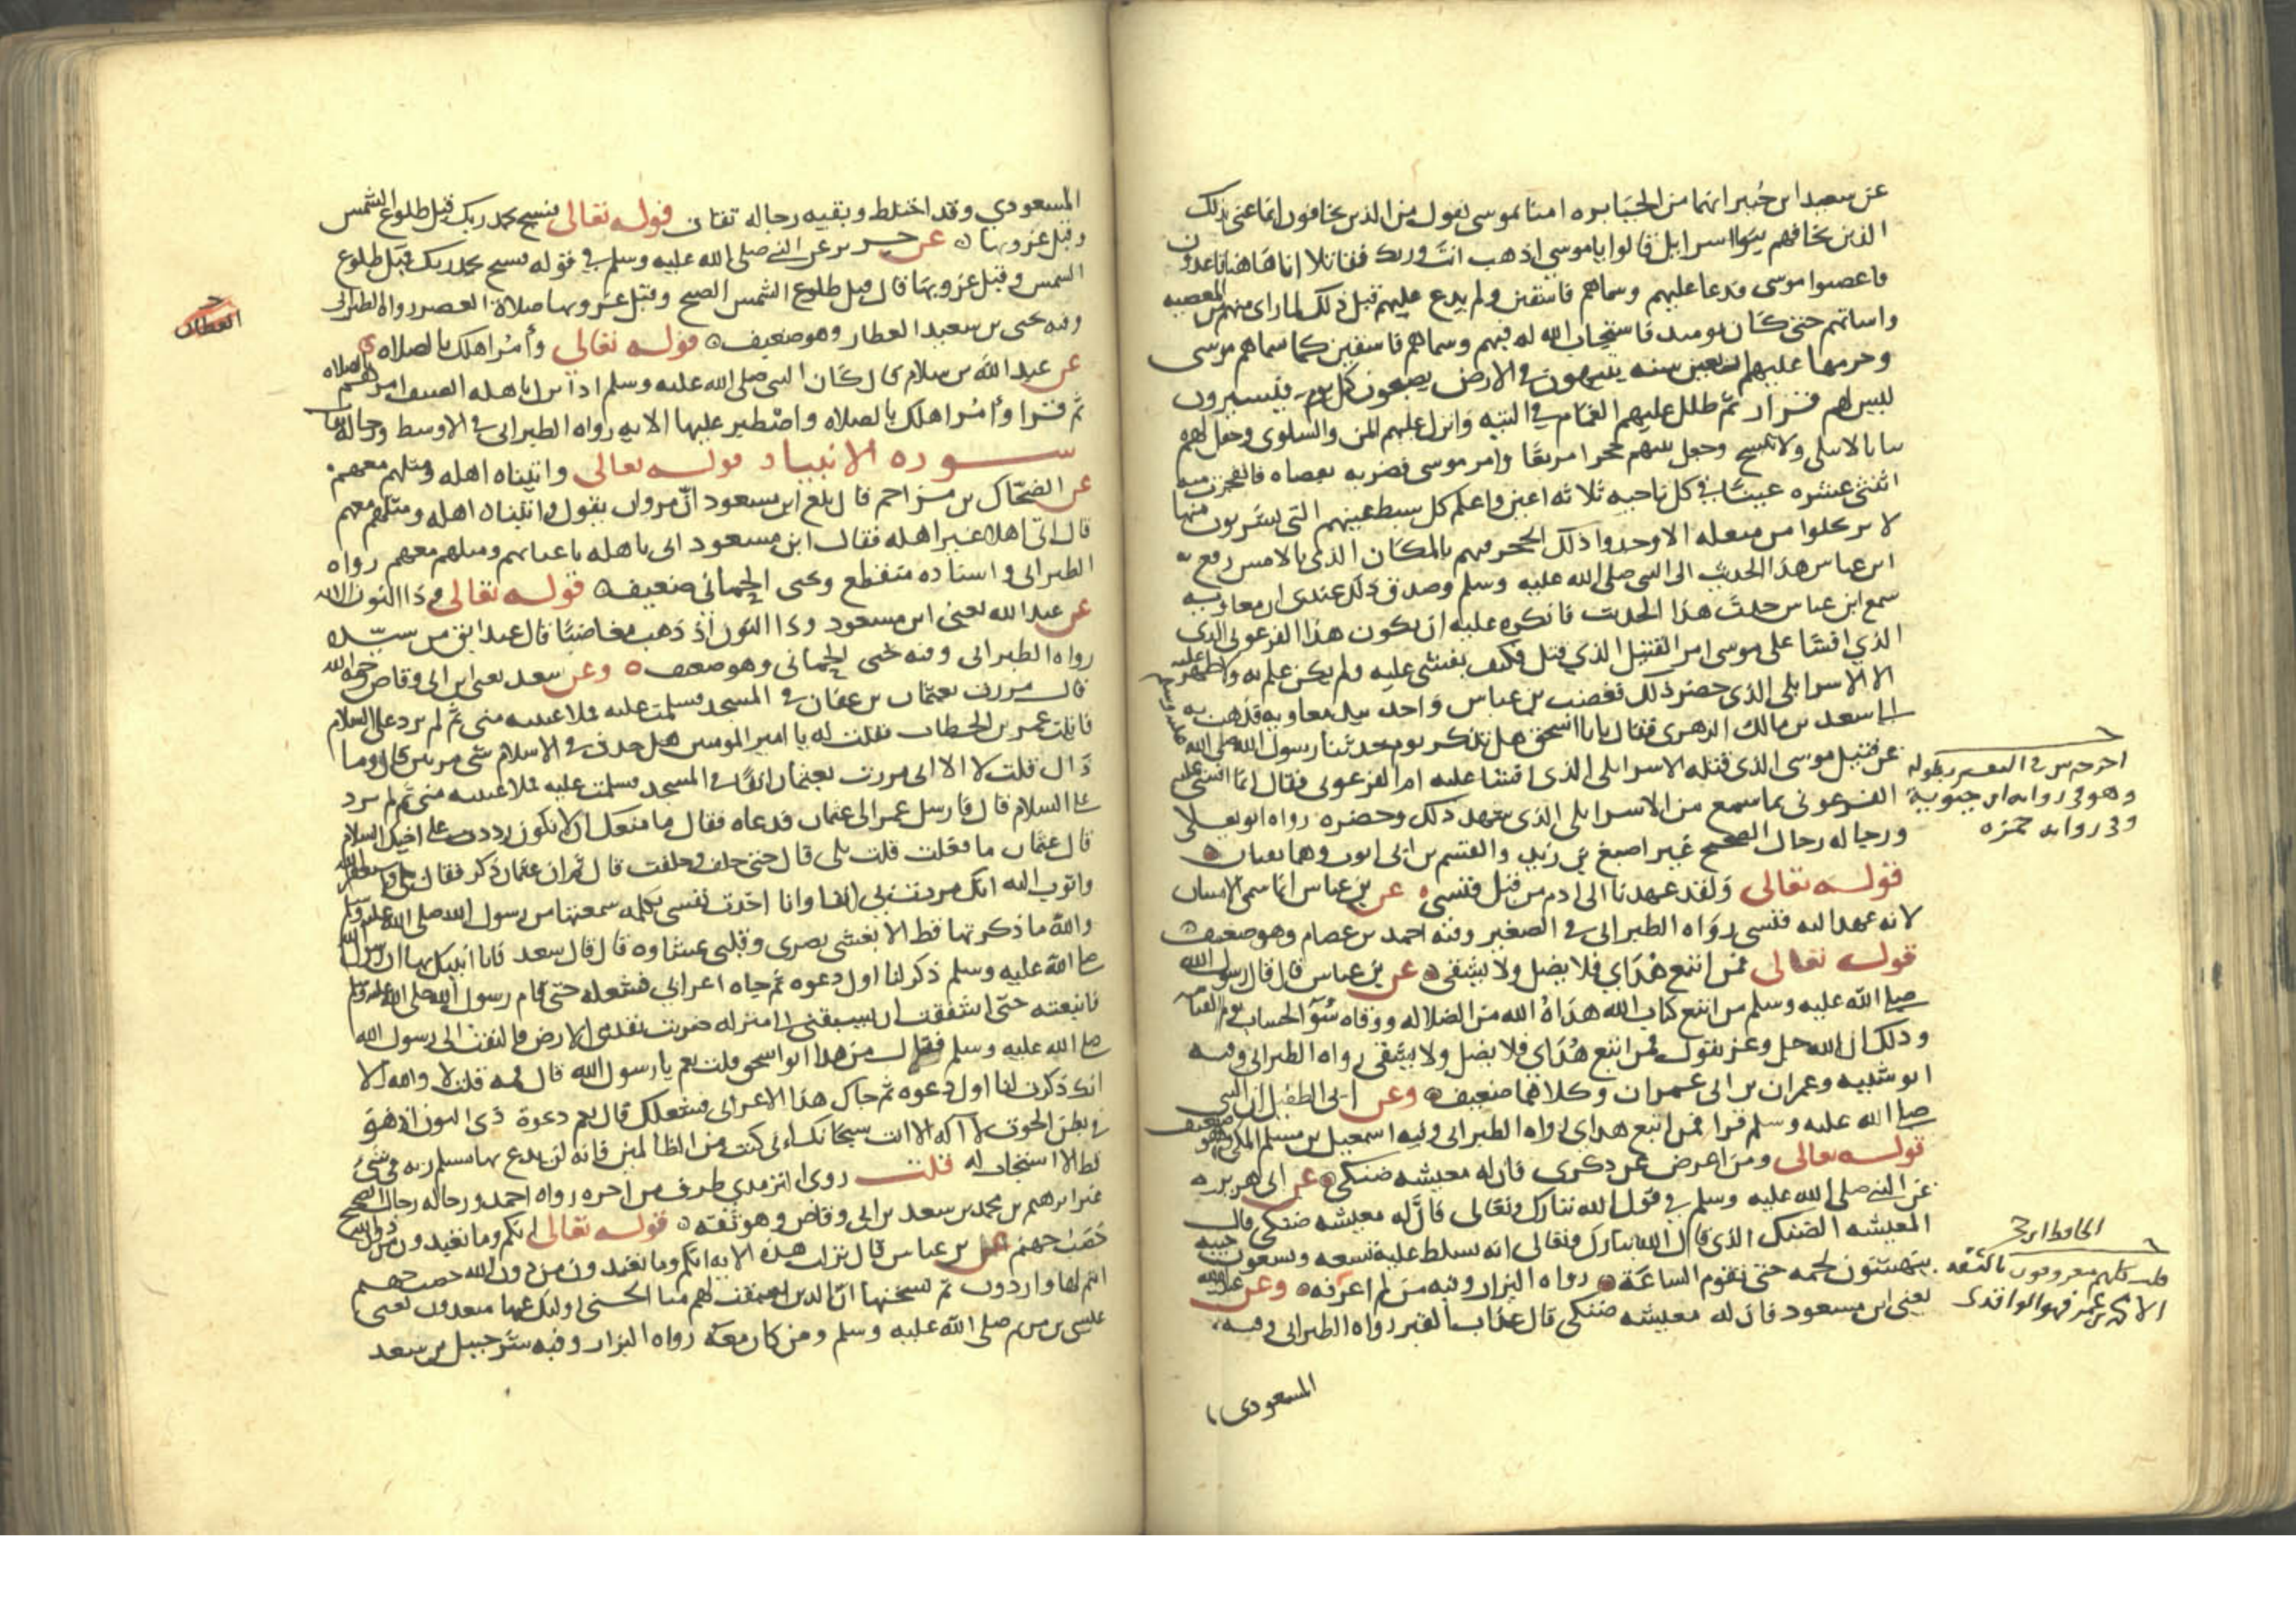 عن سعيد ابن جبير انهما من الجبابره امنا بموسى يقول من الذين يخافون انما عنى بذلك
الذين يخافهم بنوا اسرايل قالوا ياموسى اذهب انت وربك فقاتلا انا هاهنا قاعدون
فاعصوا موسى فدعا عليهم وسماهم فاسقين ولم يدع عليهم قبل ذلك لما راى منهم من المعصيه
واساتهم حتى كان يوميد فاستجاب الله له فيهم وسماهم فاسقين كما سماهم موسى
وحرمها عليهم اربعين سنه يتيهون في الارض يصبحون كل يوم فيسيرون
ليس لهم قرار ثم ظلل عليهم الغمام في التيه وانزل عليهم المن والسلوى وجعل لهم
ثيابا لا تبلى ولا تتسخ وجعل بينهم حجرا مربعا وامر موسى فضربه بعصاه فانفجرت منه
اثنتى عشره عينا في كل ناحيه ثلاثه اعين واعلم كل سبط عينهم التى يشربون منها
لا يرتحلوا من منقله الا وجدوا ذلك الحجر فيهم بالمكان الذى بالامس رفع
ابن عباس هذا الحديث الى النبى صلى الله عليه وسلم وصدق ذلك عندى ان معاويه
سمع ابن عباس حدث هذا الحديث فانكره عليه ان يكون هذا الفرعونى الذى
الذي افشا على موسى امر القتيل الذي قتل فكيف يفشى عليه ولم يكن علم به ولا ظهر عليه
الا الاسرايلى الذى حضر ذلك فغضب بن عباس واخذ بيد معاويه فذهب به
الى سعد بن مالك الزهرى فقال يابا اسحق هل تذكر يوم حدثنا رسول الله صلى الله عليه وسلم
عن قتيل موسى الذى قتله الاسرايلى الذى افشا عليه ام الفرعونى فقال انما افشى عليه
الفرعونى بما سمع من الاسرايلى الذى شهد ذلك وحضره رواه ابو يعلى
ورجاله رجال الصحيح غير اصبغ بن زيد والقسم بن ابى ايوب وهما ثقتان
قوله تعالى ولقد عهدنا الى ادم من قبل فنسى عن بن عباس انما سمى الانسان
لانه عهد اليه فنسى رواه الطبرانى في الصغير وفيه احمد بن عصام وهو ضعيف
قوله تعالى فمن اتبع هداي فلا يضل ولا يشقى عن بن عباس قال قال رسول الله
صلى الله عليه وسلم من اتبع كتاب الله هداه الله من الضلاله ووقاه سوء الحساب يوم القيامه
وذلك ان الله جل وعز يقول فمن اتبع هداي فلا يضل ولا يشقى رواه الطبرانى وفيه
ابو شيبه وعمران بن ابى عمران وكلاهما ضعيف وعن ابى الطفيل ان النبى
صلى الله عليه وسلم قرا فمن اتبع هداى رواه الطبرانى وفيه اسمعيل بن مسلم المكى وهو ضعيف
قوله تعالى ومن اعرض عن ذكرى فان له معيشه ضنكى عن ابى هريره
عن النبى صلى الله عليه وسلم في قول الله تبارك وتعالى فان له معيشه ضنكى قال
المعيشه الضنك الذى قال الله تبارك وتعالى انه يسلط عليه تسعه وتسعون حيه
ينهشون لحمه حتى تقوم الساعه رواه البزار وفيه من لم اعرفه وعن عبد الله
يعنى ابن مسعود فان له معيشه ضنكى قال عذاب القبر رواه الطبرانى وفيه
المسعودى
في التفسير بطوله
وهو في روايه ابن حيويه
وفى روايه حمزه
قلت كلهم معروفون بالثقه
فهو الواقدى
المسعودي وقد اختلط وبقيه رجاله ثقات قوله تعالى فسبح بحمد ربك قبل طلوع الشمس
وقبل غروبها عن جرير عن النبى صلى الله عليه وسلم في قوله فسبح بحمد ربك قبل طلوع
الشمس وقبل غروبها قال قبل طلوع الشمس الصبح وقبل غروبها صلاة العصر رواه الطبرانى
وفيه يحيى بن سعيد العطار وهو ضعيف قوله تعالى وأمر اهلك بالصلاه
عن عبد الله بن سلام قال كان النبى صلى الله عليه وسلم اذا نزل باهله الضيق امرهم بالصلاه
ثم قرا وأمر اهلك بالصلاه واصطبر عليها الايه رواه الطبرانى في الاوسط ورجاله ثقات
سوره الانبياء قوله تعالى واتيناه اهله ومثلهم معهم
عن الضحاك بن مزاحم قال بلغ ابن مسعود ان مروان يقول واتيناه اهله ومثلهم معهم
قال اتى اهلا غير اهله فقال ابن مسعود اتى باهله باعيانهم ومثلهم معهم رواه
الطبرانى واسناده منقطع ويحيى الحمانى ضعيف قوله تعالى وذا النون الايه
عن عبد الله يعنى ابن مسعود وذا النون اذ ذهب مغاضبا قال عبد ابق من سيده
رواه الطبرانى وفيه يحيى الحمانى وهو ضعيف وعن سعد يعنى ابن ابى وقاص
قال مررت بعثمان بن عفان في المسجد فسلمت عليه فملا عينيه منى ثم لم يرد على السلام
فاتيت عمر بن الخطاب فقلت له يا امير المومنين هل حدث في الاسلام شى مرتين قال وما
ذاك قلت لا الا انى مررت بعثمان انفا في المسجد فسلمت عليه فملا عينيه منى ثم لم يرد
على السلام قال فارسل عمر الى عثمان فدعاه فقال ما منعك ان لا تكون رددت على اخيك السلام
قال عثمان ما فعلت قلت بلى قال حتى حلف وحلفت قال ثم ان عثمان ذكر فقال بلى واستغفر الله
واتوب اليه انك مررت بى انفا وانا احدث نفسى بكلمه سمعتها من رسول الله صلى الله عليه وسلم
والله ما ذكرتها قط الا يغشى بصرى وقلبى غشاوه قال قال سعد فانا انبيك بها ان رسول الله
صلى الله عليه وسلم ذكر لنا اول دعوه ثم جاه اعرابى فشغله حتى قام رسول الله صلى الله عليه وسلم
فاتبعته حتى اشفقت ان يسبقنى الى منزله ضربت بقدمى الارض فالتفت الى رسول الله
صلى الله عليه وسلم فقال من هذا ابو اسحق قلت نعم يا رسول الله قال فمه قلت لا والله الا
انك ذكرت لنا اول دعوه ثم جاك هذا الاعرابى فشغلك قال نعم دعوة ذى النون اذ هو
في بطن الحوت لا اله الا انت سبحانك انى كنت من الظالمين فانه لن يدع بها مسلم ربه في شى
قط الا استجاب له قلت روى الترمذي طرف من اخره رواه احمد ورجاله رجال الصحيح
غير ابرهيم بن محمد بن سعد بن ابى وقاص وهو ثقه قوله تعالى انكم وما تعبدون من دون الله
حصب جهنم عن بن عباس قال نزلت هذه الايه انكم وما تعبدون من دون الله حصب جهنم
انتم لها واردون ثم نسختها ان الذين سبقت لهم منا الحسنى اوليك عنها مبعدون يعنى
عيسى بن مريم صلى الله عليه وسلم ومن كان معه رواه البزار وفيه شرحبيل بن سعد
العطار